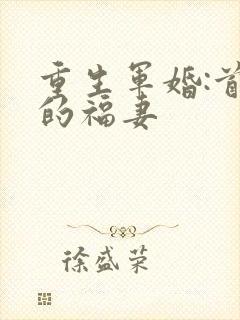 重生軍婚:首
的福妻
徐盛荣